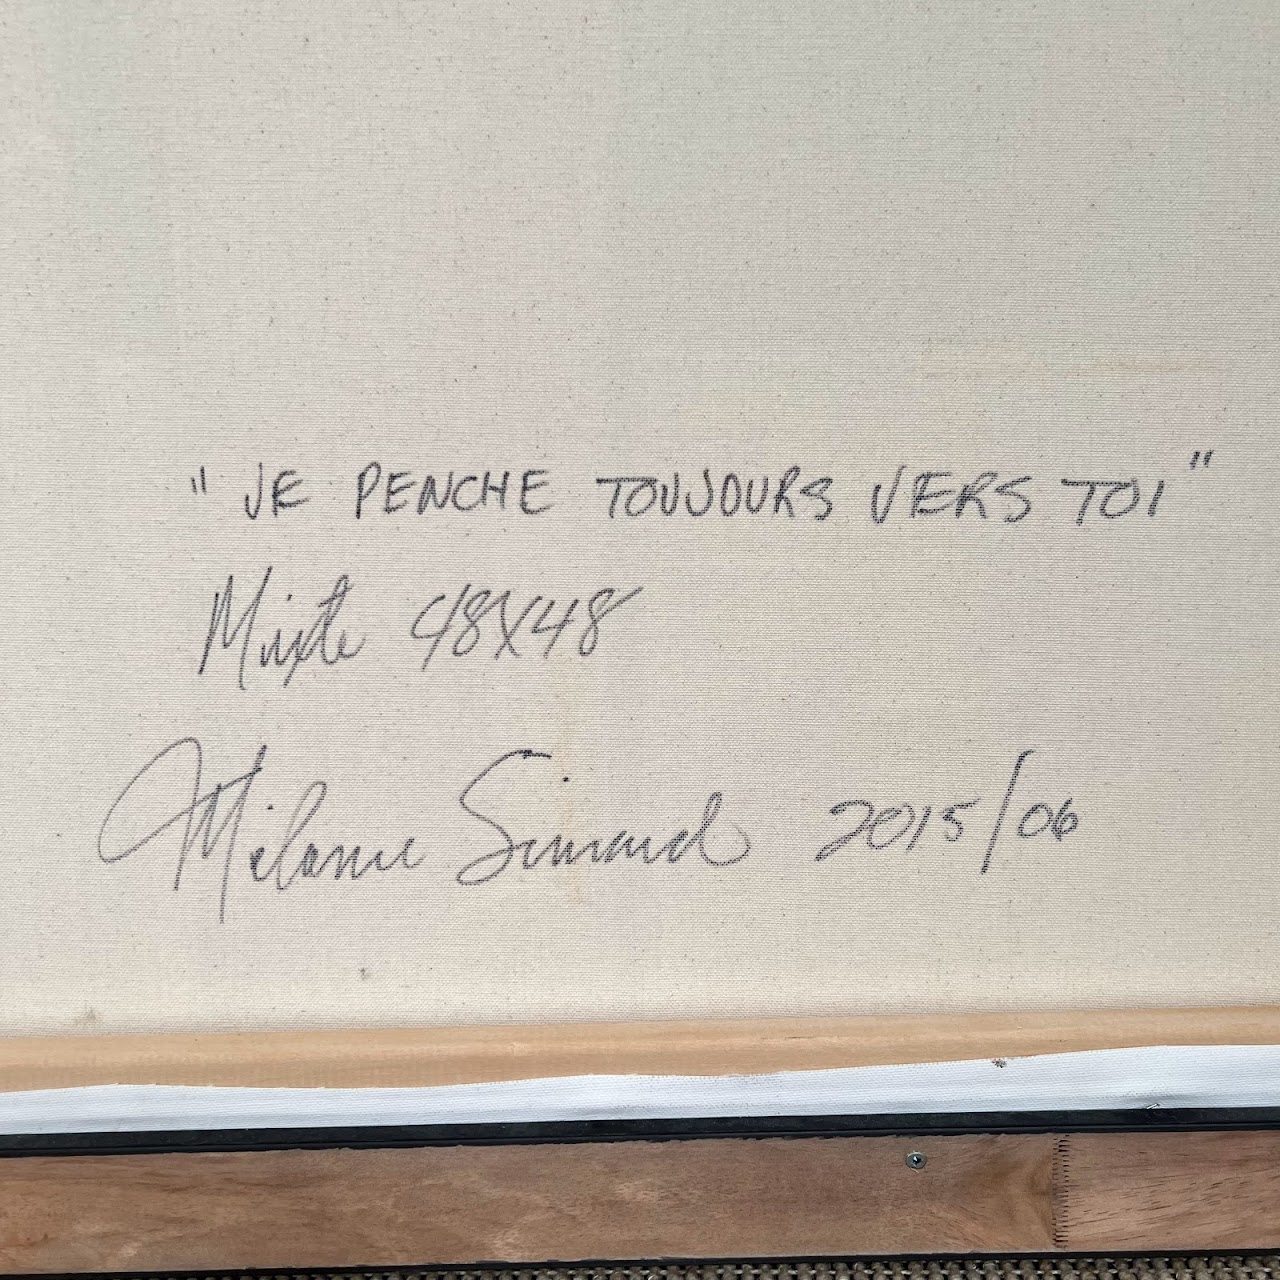 " JE PENCHE TOUJOURS VERS TOI "
Mixte 48X48
Mélanie Simard 2015/06